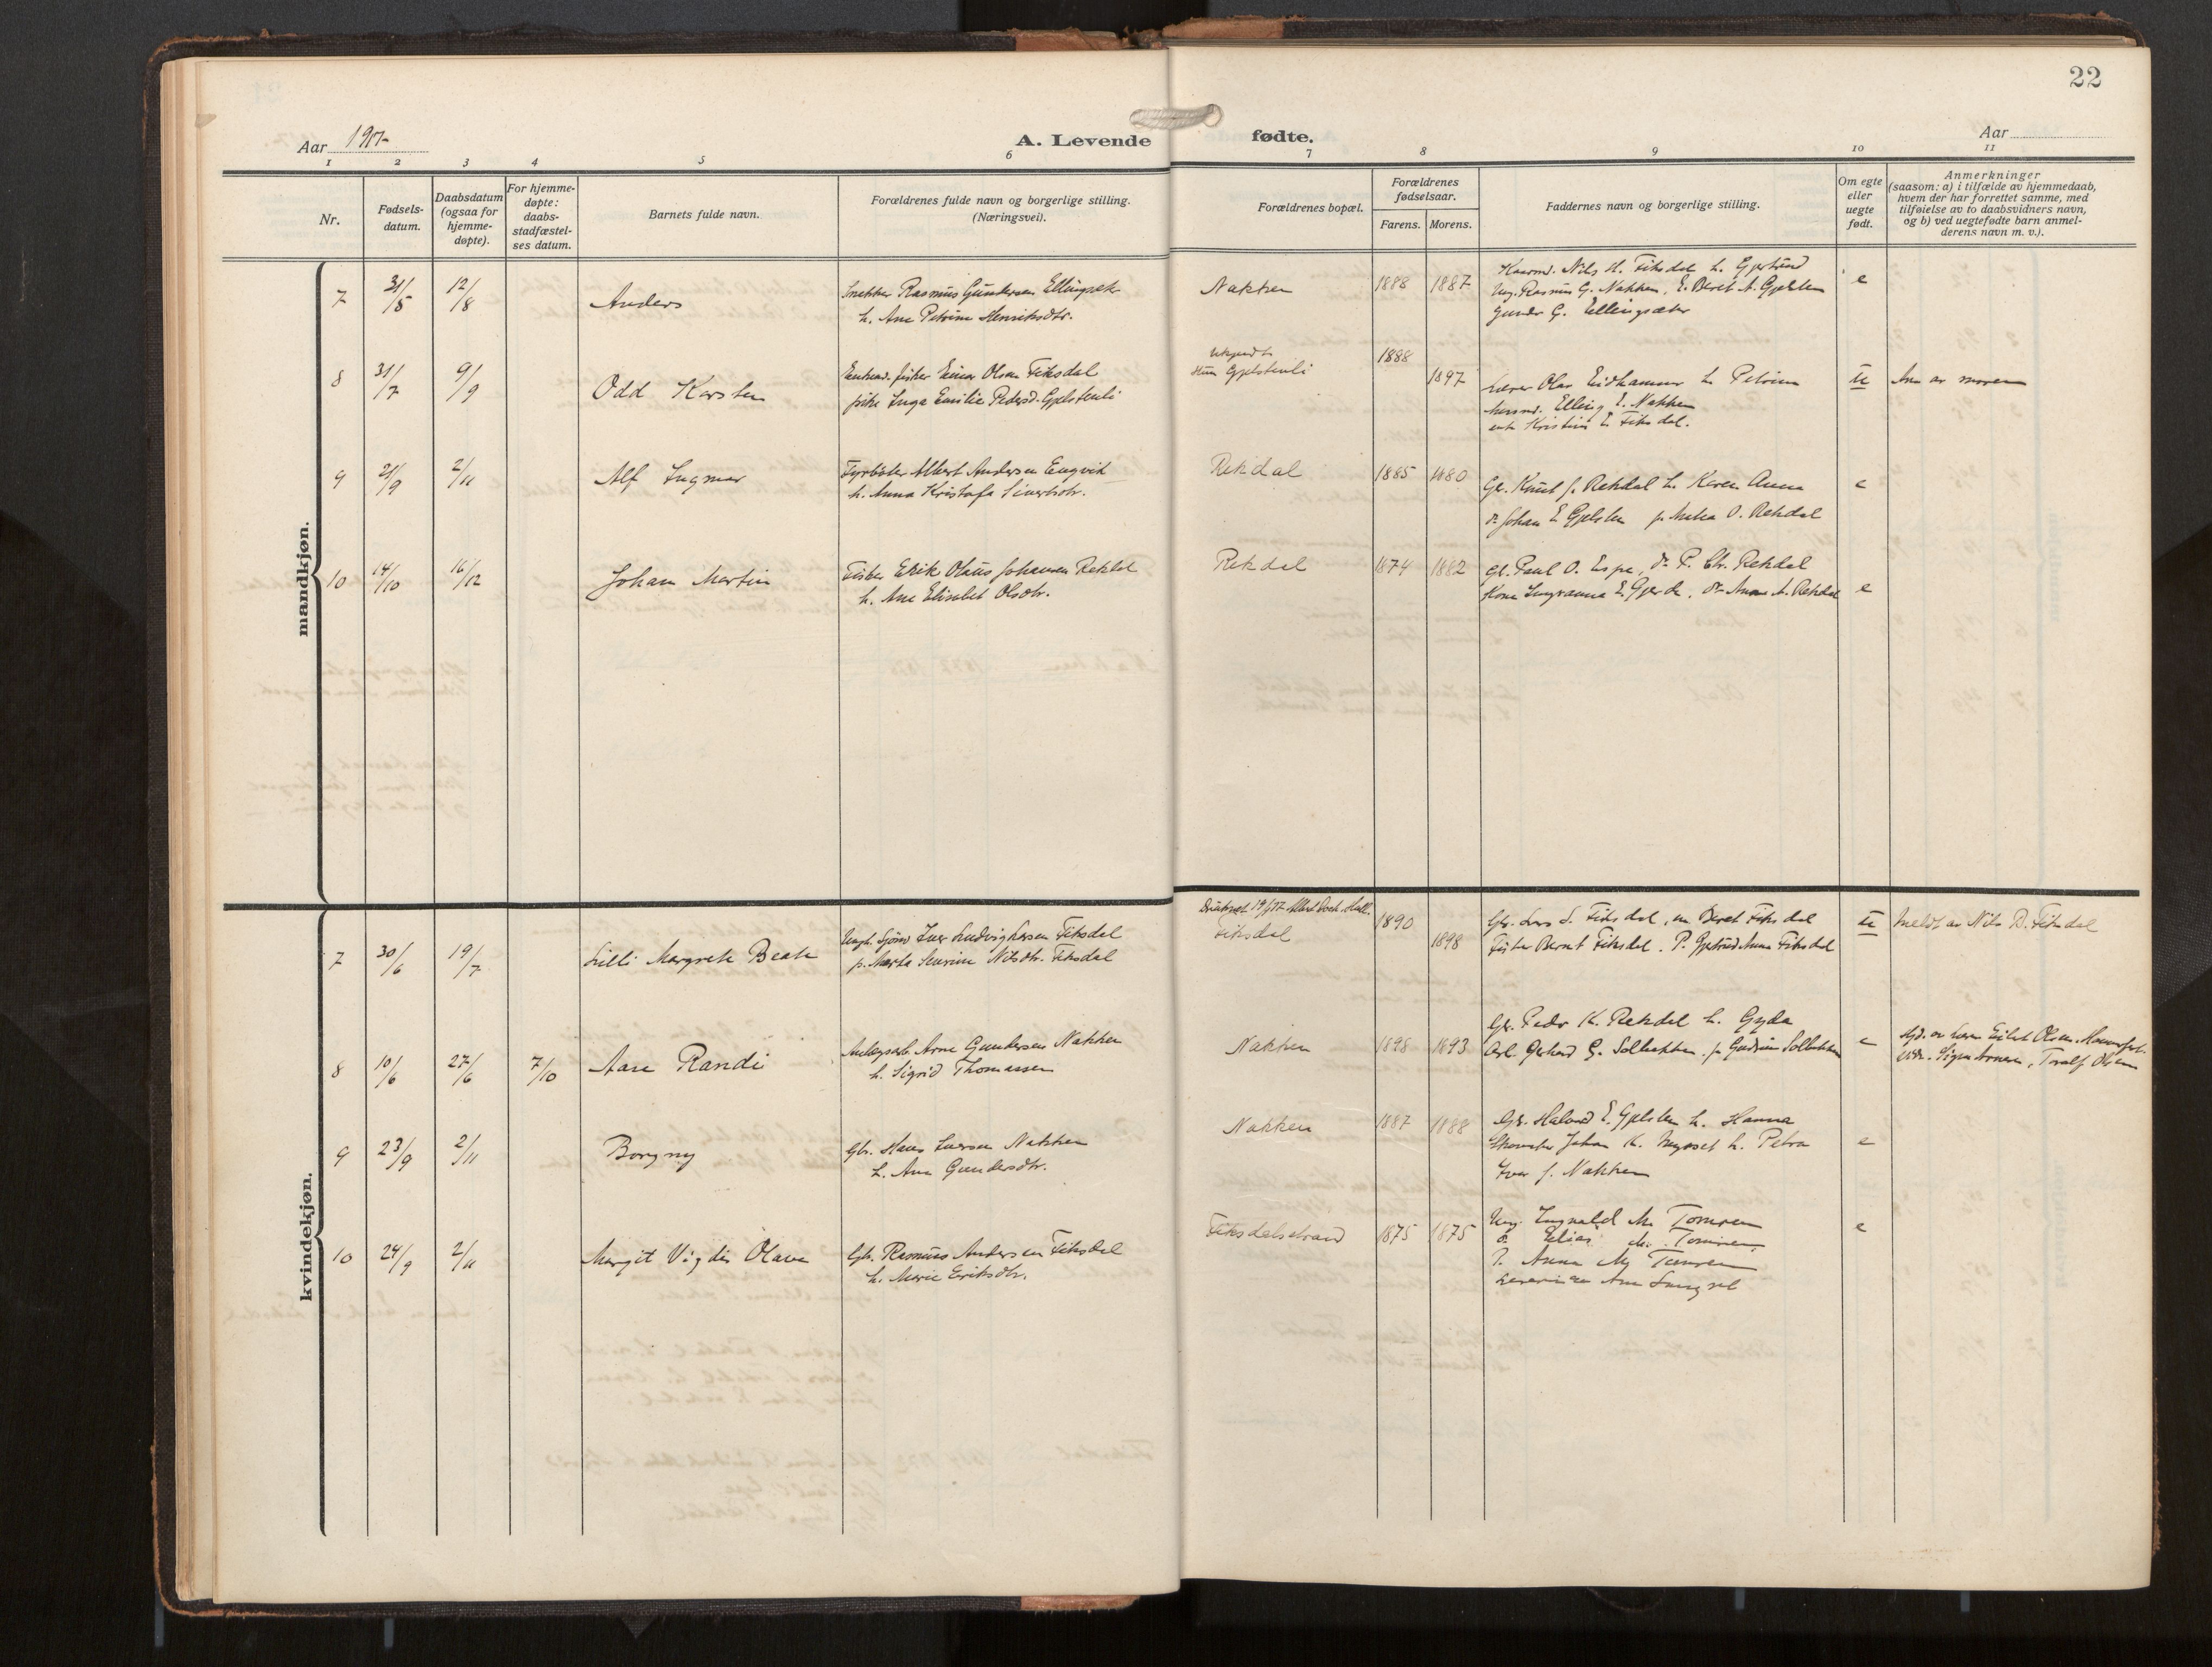 22
Aar 1917
A. Levende fødte.
Aar
1 2 3 4 5 6 7 8 9 10 11
Nr.
Fødsels-
datum.
Daabsdatum
(ogsaa for
hjemme-
døpte).
For hjemme-
døpte:
daabs-
stadfæstel-
ses datum.
Barnets fulde navn.
Forældrenes fulde navn og borgerlige stilling.
(Næringsvei).
Forældrenes bopæl.
Forældrenes
fødselsaar.
Farens. Morens.
Faddernes navn og borgerlige stilling.
Om egte
eller
uegte
født.
Anmerkninger
(saasom: a) i tilfælde av hjemmedaab,
hvem der har forrettet samme, med
tilføielse av to daabsvidners navn,
og b) ved uegtefødte barn anmel-
derens navn m. v.).
mandkjøn.
7 31/5 12/8 Anders
Snekker Rasmus Gundersen Ellingsæter
h. Ane Petrine Henriksdtr.
Nakken 1888 1887
Nils H. Fiksdal h. Gjertrud
Ung. Rasmus G. Nakken, E. Beret A. Gjelsten
Gunder G. Ellingsæter
e
8 31/7 9/9 Odd Karsten
Enkem. fisker Einar Olsen Fiksdal
pike Inga Emilie Pedersd. Gjelstenli
Hun Gjelstenli
1888 1897
Lærer Olav Eidhammer h. Petrine
Elling E. Nakken
enke Kristine E. Fiksdal.
u
Anm av moren
9 21/9 2/11 Alf Ingmar
Fyrbøter Albert Andersen Engvik
h. Anna Kristofa Sivertsdtr.
Rekdal 1885 1880
Gbr. Knut J. Rekdal h. Karen Anna
do Johan E. Gjelsten p. O. Rekdal
e
10 14/10 16/12 Johan Martin
Fisker Erik Olaus Johansen Rekdal
h. Ane Elisabet Olsdtr.
Rekdal 1874 1882
Gbr. Paul O. Espe, do P. Chr. Rekdal
Kone Ingvanna E. Gjerde, do Anne A. Rekdal
e
kvindekjøn.
7 30/6 19/7 Lilli Margrete Beate
Ungk. Sjøm. Iver Ludvig Larsen Fiksdal
p. Marta Severine Nilsdtr. Fiksdal
Fiksdal
1890 1898
Gbr. Lars S. Fiksdal, m Beret Fiksdal
Fisker Bernt Fiksdal. P. Gjertrud Anna Fiksdal
u
Meldt av Nils B. Fiksdal
8 10/6 27/6 7/10 Aase Randi
Anlægsarb. Arne Gundersen Nakken
h. Sigrid Thomassen
Nakken 1898 1893
Gbr. Peder K. Rekdal h. Gyda
Arb. Gerhard G. Solbakken p. Gudrun Solbakken
e
Hjd. av Eilert Olsen
Vidn. Signe Arnesen, Toralf Olsen
9 23/9 2/11 Borgny
Gbr. Hans Iversen Nakken
h. Ane Gundersdtr.
Nakken 1887 1888
Gbr. Halvard E. Gjelsten h. Hanna
Skomaker Johan K. Myrset h. Petra
Iver J. Nakken
e
10 24/9 2/11 Margit Vigdis Olava
Gbr. Rasmus Andersen Fiksdal
h. Marie Eriksdtr.
Fiksdalstrand 1875 1875
Ung. Ingvald M. Tomren
do Elias M. Tomren
P. Anna M. Tomren
Lærerinne
e